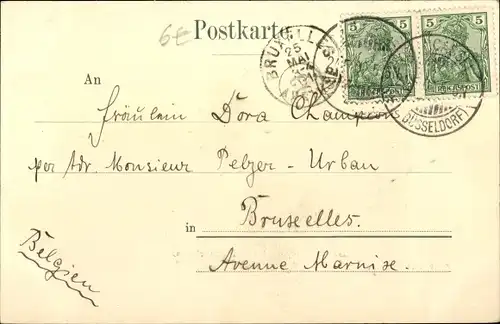 6€
Postkarte
5 5
5 5
REICHSPOST
BRUXELLES
25
MAI
DÜSSELDORF
An
Fräulein Dora Champion
per Adr. Monsieur Pelzer-Urban
in Bruxelles.
Avenue Marnise.
Belgien